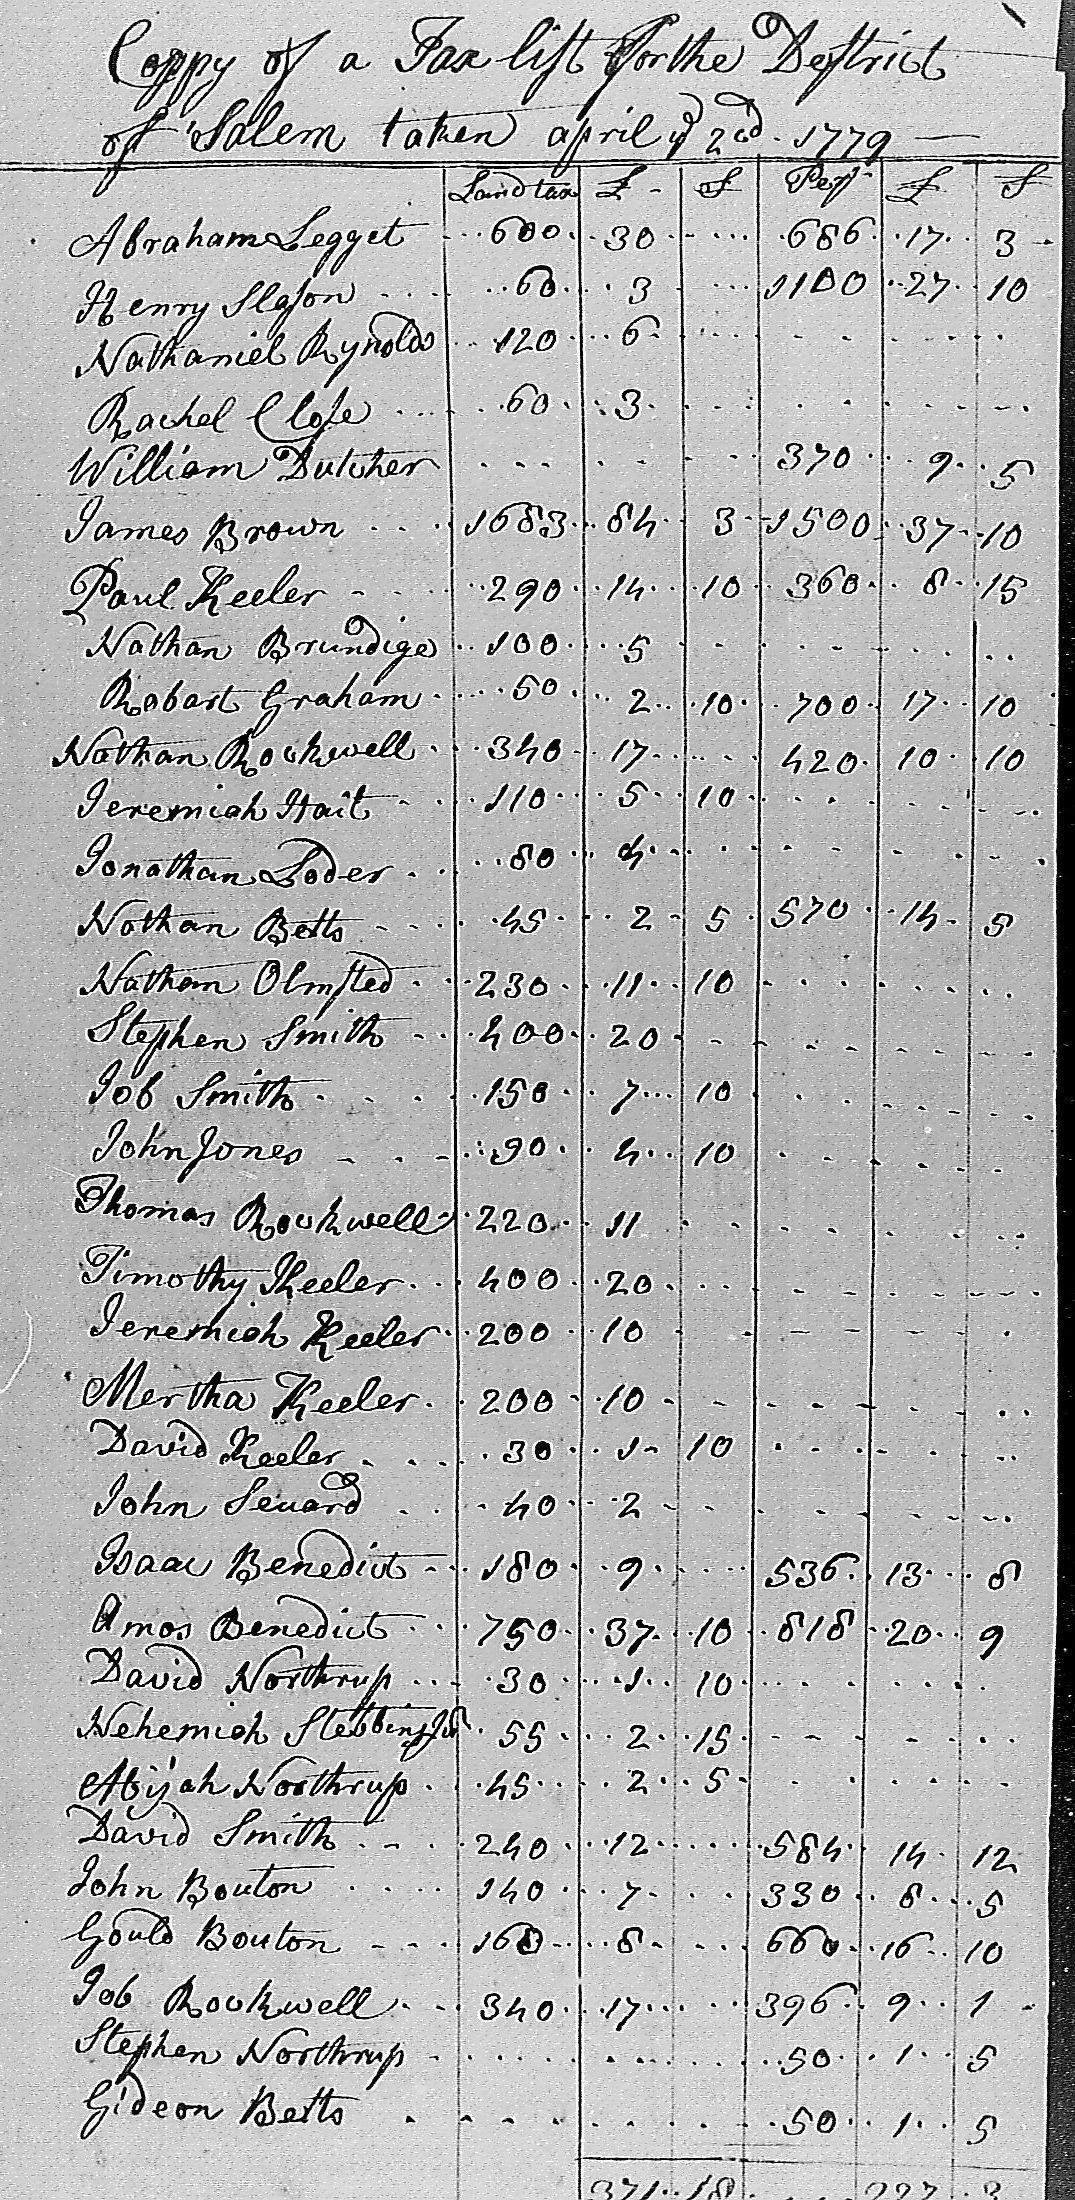 Coppy of a Tax list for the Destrict
of Salem taken april ye 2nd 1779
Land tax £ S Pers £ S
Abraham Legget 600 30 686 17 3
Henry Slason 60 3 1100 27 10
Nathaniel Rynolds 120 6
Rachel Close 60 3
William Dutcher 370 9 5
James Brown 1683 84 3 1500 37 10
Paul Keeler 290 14 10 360 8 15
Nathan Brundige 100 5
Robart Graham 50 2 10 700 17 10
Nathan Rockwell 340 17 420 10 10
Jeremiah Hait 110 5 10
Jonathan Loder 80 4
Nathan Betts 45 2 5 570 14 5
Nathan Olmsted 230 11 10
Stephen Smith 400 20
Job Smith 150 7 10
John Jones 90 4 10
Thomas Rockwell 220 11
Timothy Keeler 400 20
Jeremiah Keeler 200 10
Mertha Keeler 200 10
David Keeler 30 1 10
John Seuard 40 2
Isaac Benedict 180 9 536 13 8
Amos Benedict 750 37 10 818 20 9
David Northrup 30 1 10
Nehemiah Stebbins Jur 55 2 15
Abijah Northrup 45 2 5
David Smith 240 12 584 14 12
John Bouton 140 7 330 8 5
Gould Bouton 160 8 660 16 10
Job Rockwell 340 17 396 9 1
Stephen Northrup 50 1 5
Gideon Betts 50 1 5
371 18 227 3